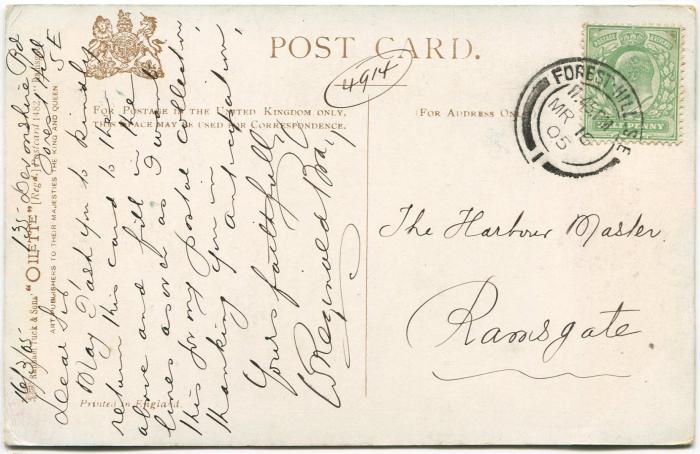 POST CARD.
4914
FOR POSTAGE IN THE UNITED KINGDOM ONLY,
THIS SPACE MAY BE USED FOR CORRESPONDENCE.
(FOR ADDRESS ONLY
FOREST-HILL S.E
11.45 AM
MR 16
05
1
PENNY
The Harbour Master
Ramsgate
16/3/05-
135- Devonshire Rd
Forest Hill
S E
Dear Sir
May I ask you to kindly
return this card to the
above and fill in the
lines as
this for my postal collection,
thanking you in anticipation,
Yours faithfully
W Reginald Bray
Raphael Tuck & Sons' "OILETTE" [Regd.] Postcard 1482
ART PUBLISHERS TO THEIR MAJESTIES THE KING AND QUEEN
Printed in England